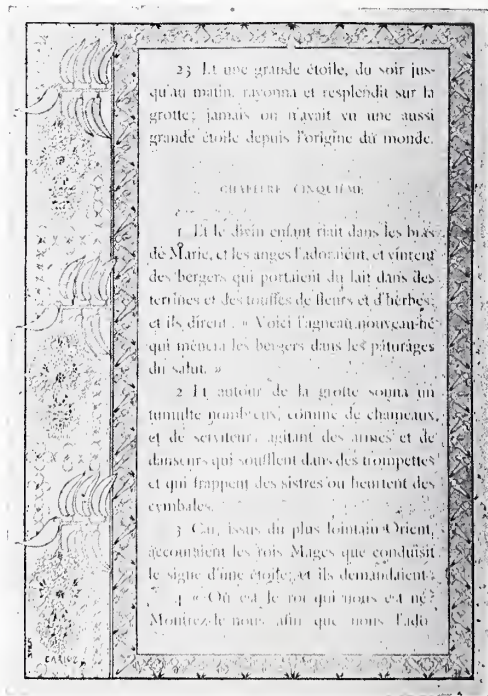 23 Et une grande étoile, du soir jus-
qu'au matin, rayonna et resplendit sur la
grotte; jamais on n'avait vu une aussi
grande étoile depuis l'origine du monde.
CHAPITRE CINQUIÈME
1 Et le divin enfant riait dans les bras
de Marie, et les anges l'adoraient, et vinrent
des bergers qui portaient du lait dans des
terrines et des touffes de fleurs et d'herbes;
et ils dirent : « Voici l'agneau nouveau-né
qui mènera les bergers dans les pâturages
du salut. »
2 Et autour de la grotte sonna un
tumulte nombreux, comme de chameaux,
et de serviteurs agitant des armes et de
danseurs qui soufflent dans des trompettes
et qui frappent des sistres ou heurtent des
cymbales.
3 Car, issus du plus lointain Orient,
accouraient les rois Mages que conduisit
le signe d'une étoile; et ils demandaient:
4 « Où est le roi qui nous est né?
Montrez-le-nous afin que nous l'ado-